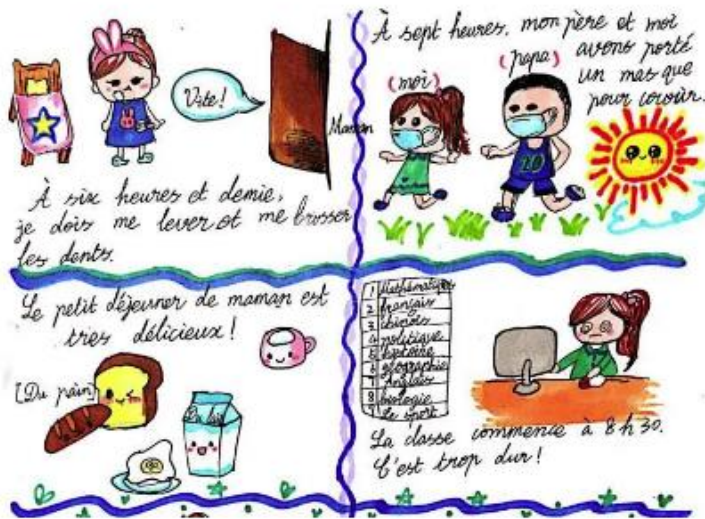 Vite!
Maman
À six heures et demie,
je dois me lever et me brosser
les dents.
À sept heures, mon père et moi
avons porté
un masque
pour courir.
(moi)
(papa)
20
Le petit déjeuner de maman est
tres délicieux!
[Du pain]
Du lait
1 Mathématiques
2 français
3 chinois
4 politique
5 histoire
6 géographie
7 Anglais
8 biologie
9 le sport
La classe commence à 8 h 30.
C'est trop dur!